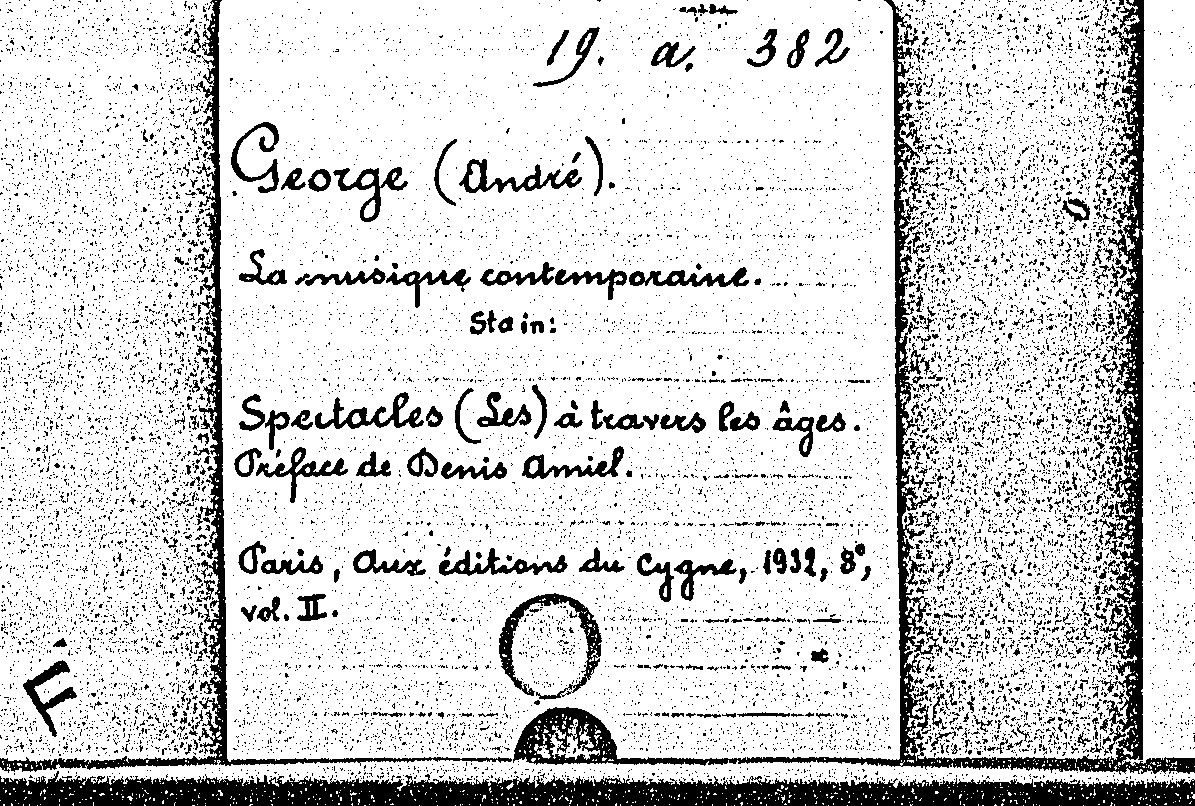 19. a. 382
George (André).
La musique contemporaine.
Stain:
Spectacles (Les) à travers les âges.
Préface de Denis Amiel.
Paris, Aux éditions du Cygne, 1932, 8°,
vol. II.